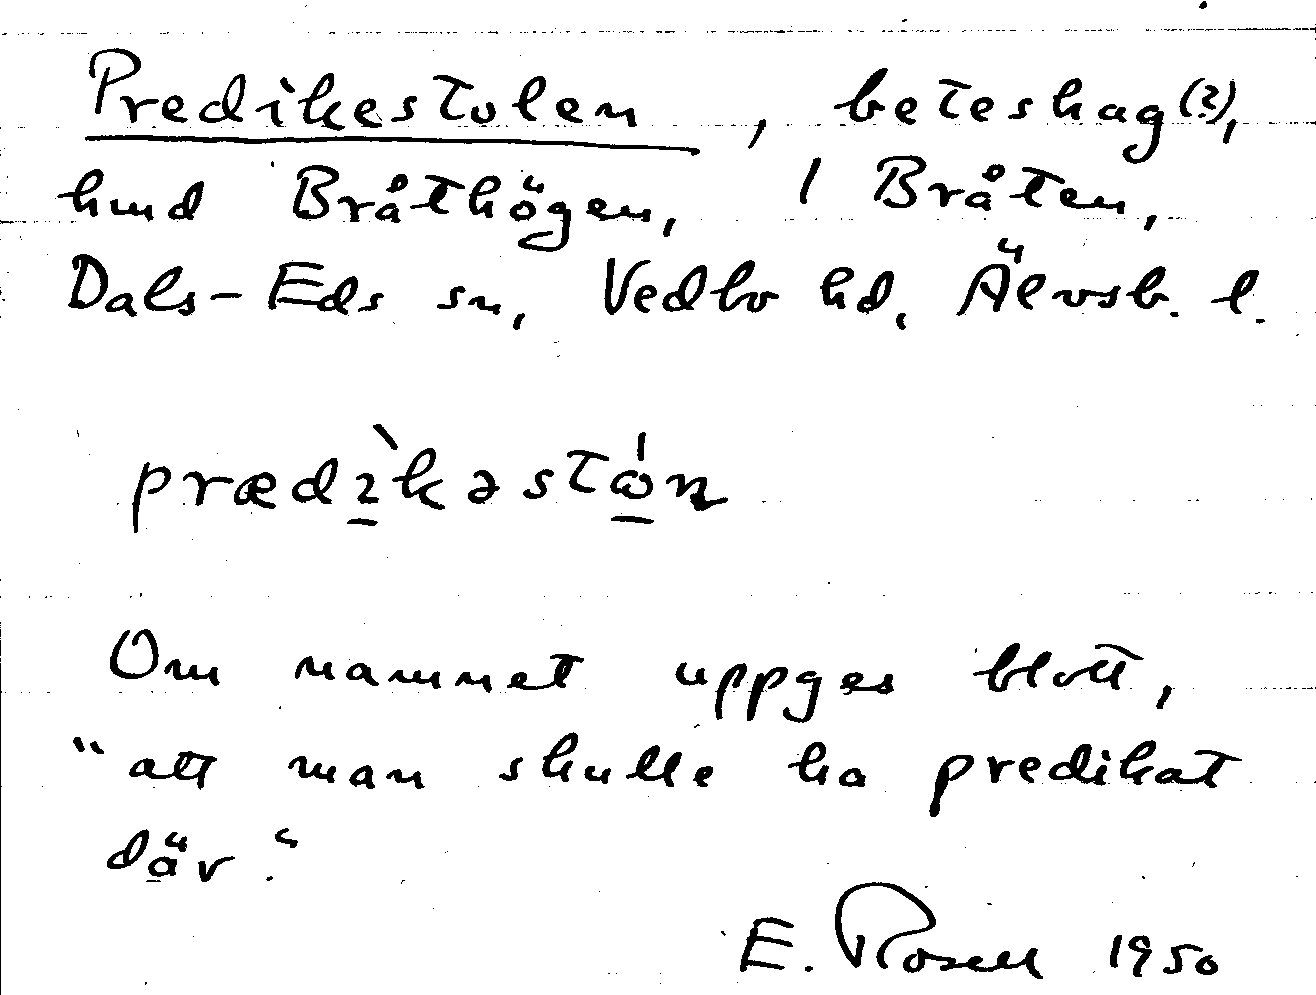 Predikestolen, beteshag (?),
hmd Bråthögen, 1 Bråten,
Dals-Eds sn, Vedbo hd, Älvsb. l.
prædìkəstón
Om namnet uppges blott,
"att man skulle ha predikat
där."
E. Rosell 1950